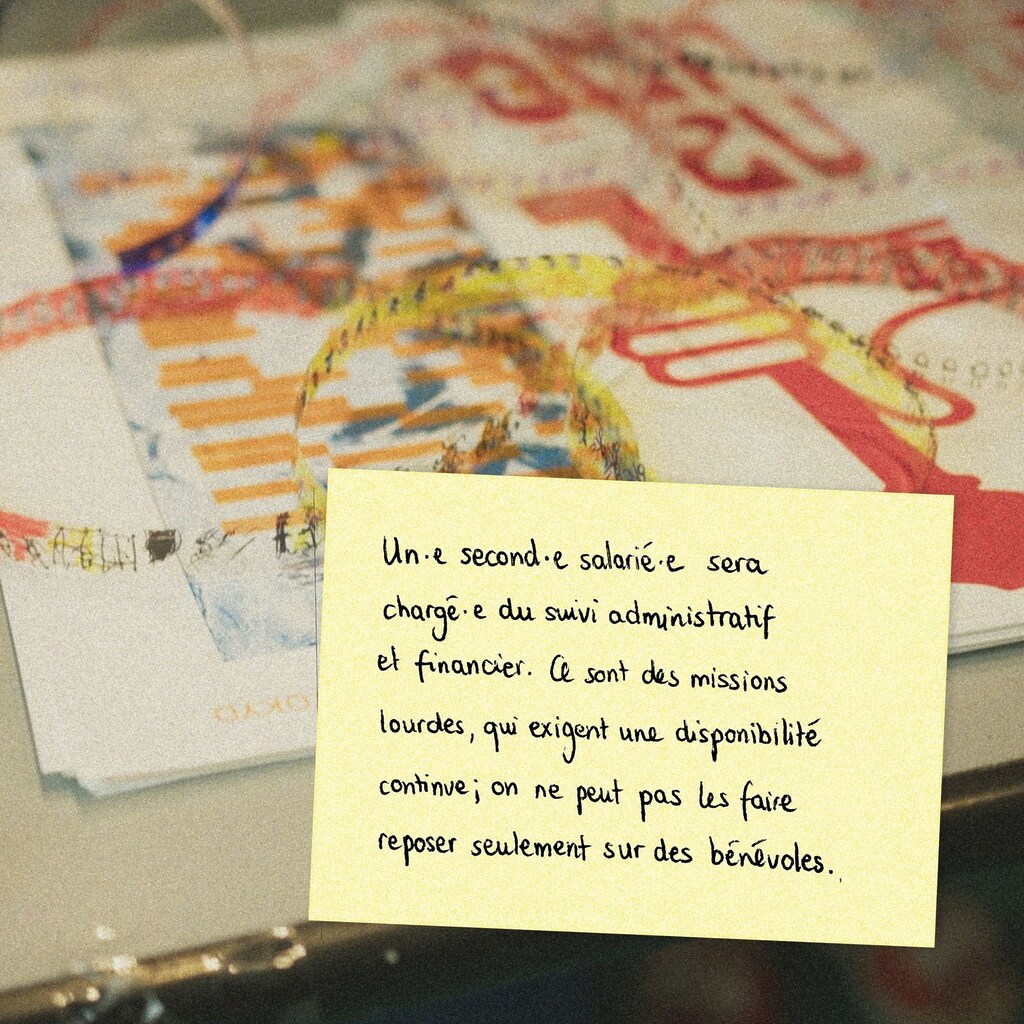 Un·e second·e salarié·e sera
chargé·e du suivi administratif
et financier. Ce sont des missions
lourdes, qui exigent une disponibilité
continue; on ne peut pas les faire
reposer seulement sur des bénévoles.